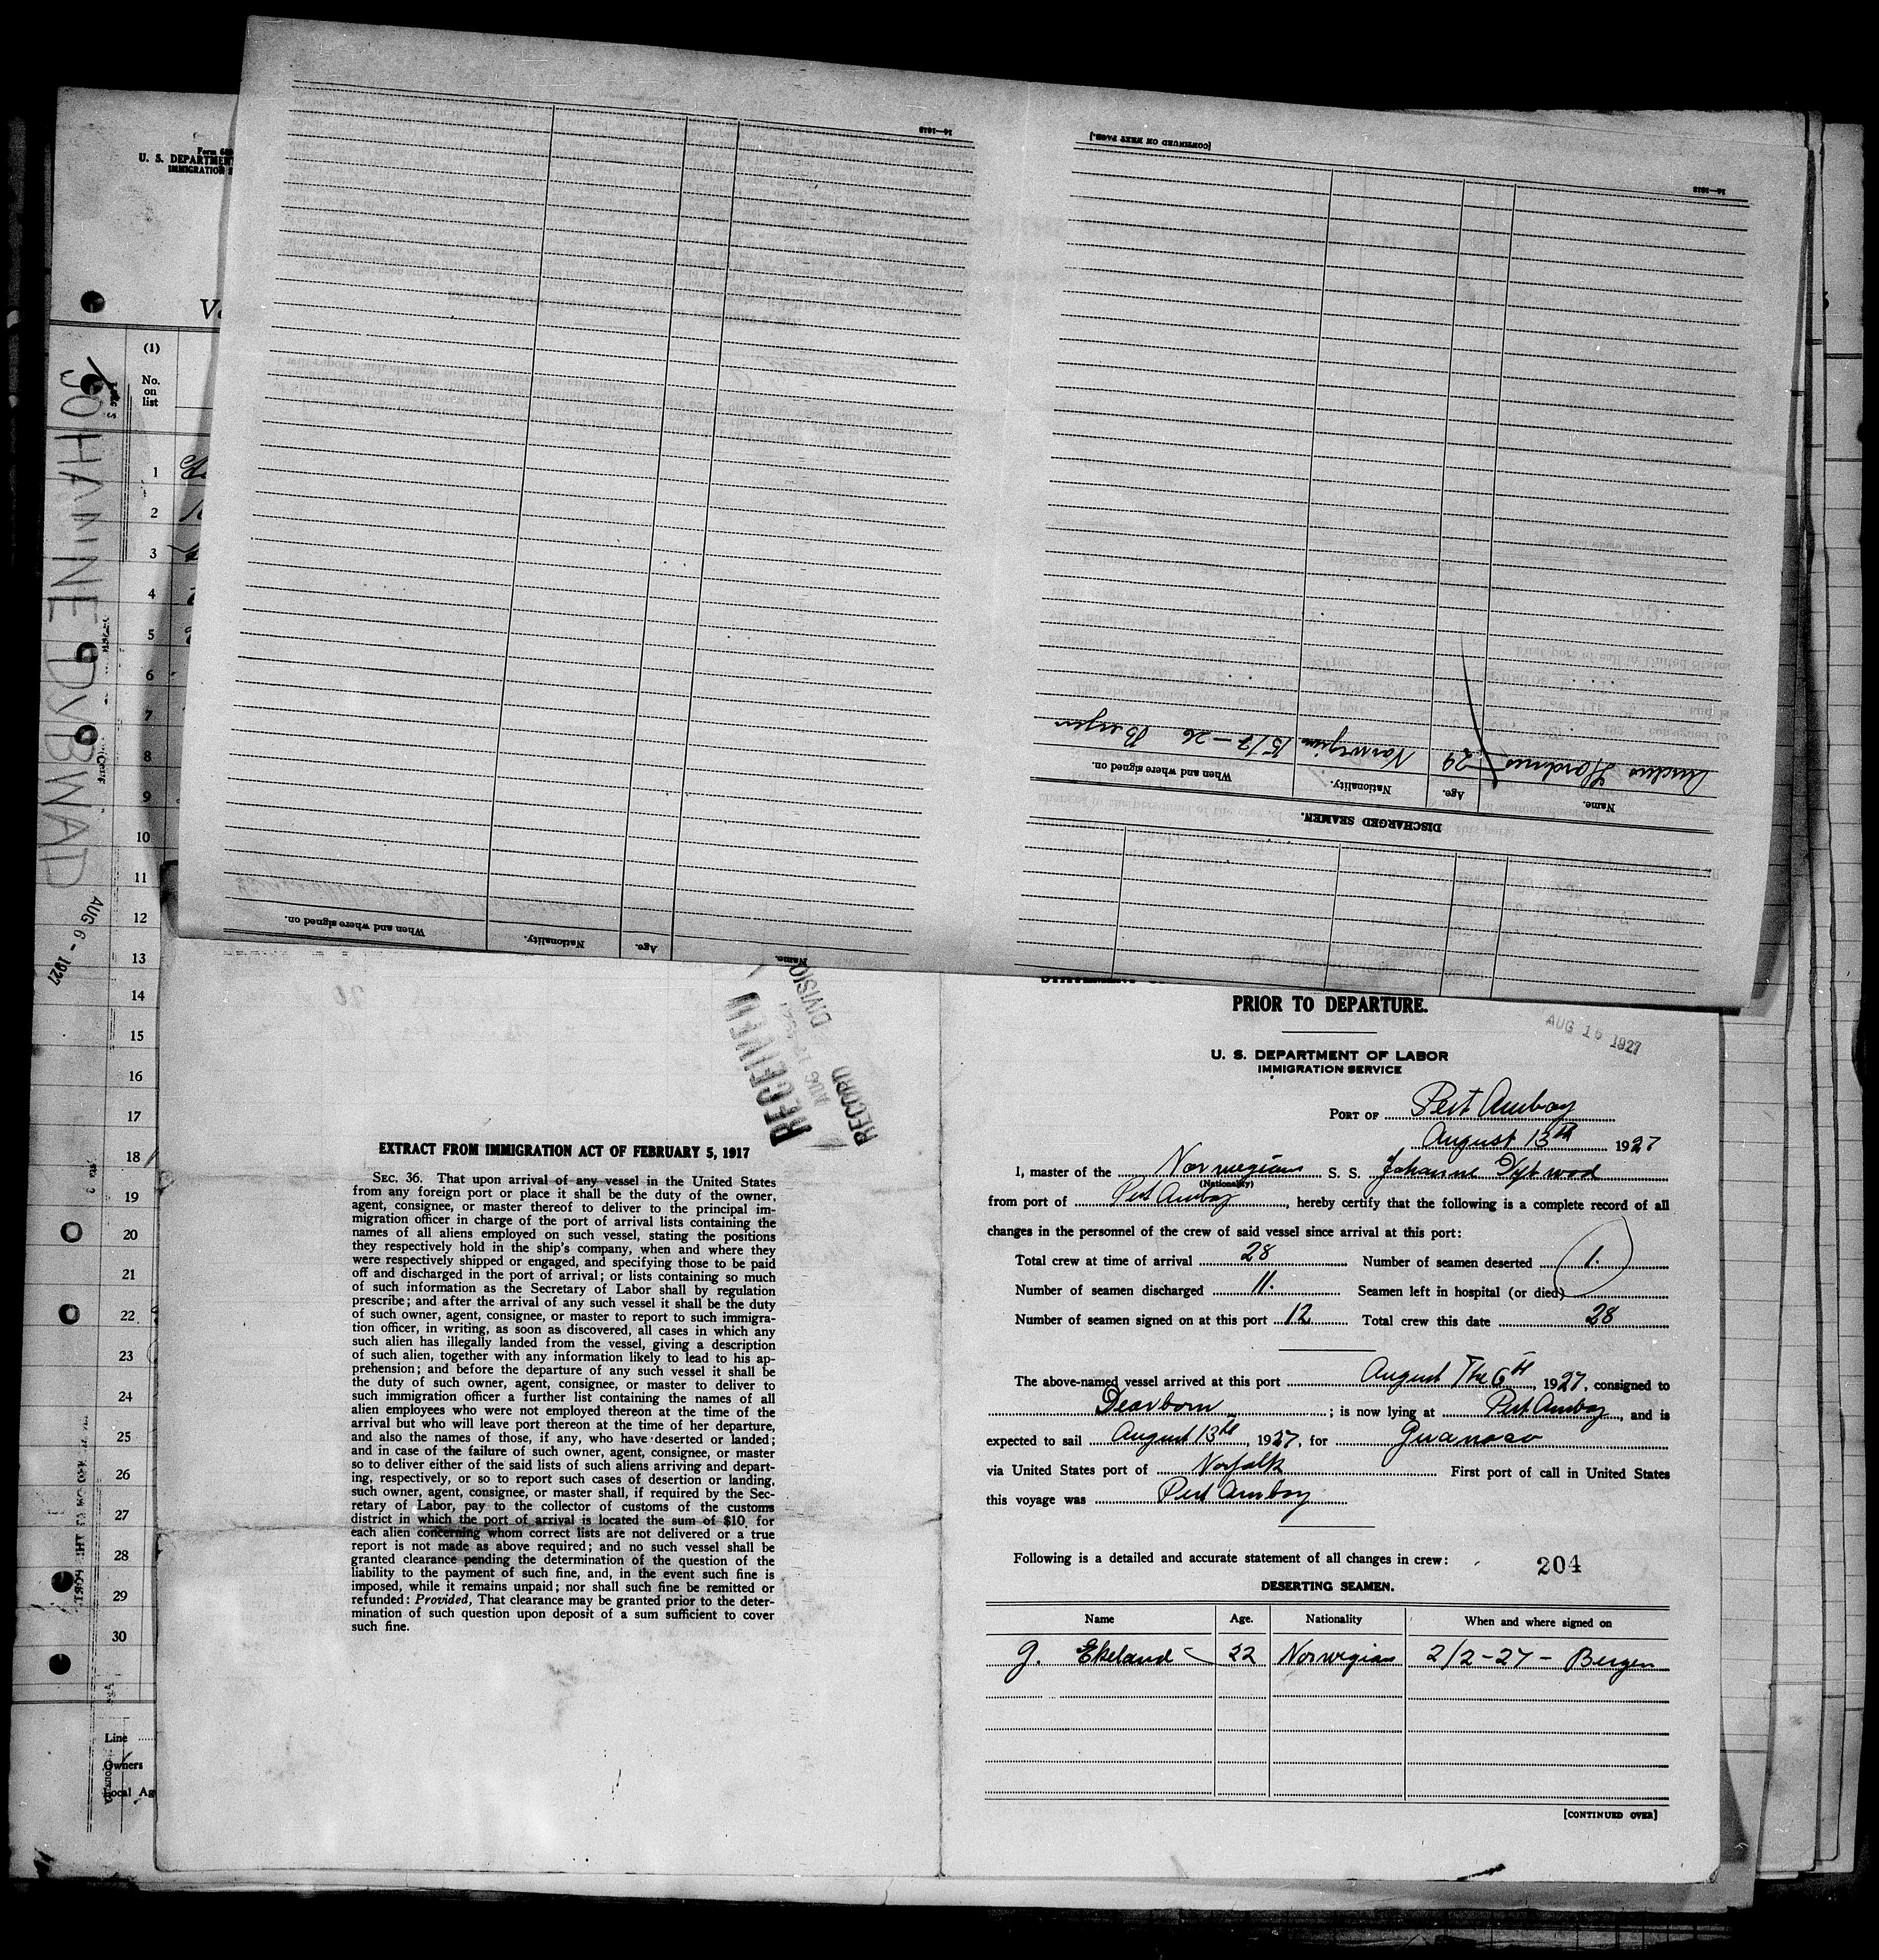 14—1618
[CONTINUED ON NEXT PAGE.]
14—1618
Norwegian 15/7-26 Bergen
29
Name.
Age.
Nationality.
When and where signed on.
DISCHARGED SEAMEN.
Name.
Age.
Nationality.
When and where signed on.
U. S. DEPARTMEN
IMMIGRATION S
(1)
No.
on
list
1
2
3
4
5
6
7
8
9
10
11
12
13
14
15
16
17
18
19
20
21
22
23
24
25
26
27
28
29
30
Line
Owners
Local Ag
AUG 6 - 1927
RECEIVED
RECORD DIVISION
EXTRACT FROM IMMIGRATION ACT OF FEBRUARY 5, 1917
SEC. 36. That upon arrival of any vessel in the United States
from any foreign port or place it shall be the duty of the owner,
agent, consignee, or master thereof to deliver to the principal im-
migration officer in charge of the port of arrival lists containing the
names of all aliens employed on such vessel, stating the positions
they respectively hold in the ship's company, when and where they
were respectively shipped or engaged, and specifying those to be paid
off and discharged in the port of arrival; or lists containing so much
of such information as the Secretary of Labor shall by regulation
prescribe; and after the arrival of any such vessel it shall be the duty
of such owner, agent, consignee, or master to report to such immigra-
tion officer, in writing, as soon as discovered, all cases in which any
such alien has illegally landed from the vessel, giving a description
of such alien, together with any information likely to lead to his ap-
prehension; and before the departure of any such vessel it shall be
the duty of such owner, agent, consignee, or master to deliver to
such immigration officer a further list containing the names of all
alien employees who were not employed thereon at the time of the
arrival but who will leave port thereon at the time of her departure,
and also the names of those, if any, who have deserted or landed;
and in case of the failure of such owner, agent, consignee, or master
so to deliver either of the said lists of such aliens arriving and depart-
ing, respectively, or so to report such cases of desertion or landing,
such owner, agent, consignee, or master shall, if required by the Sec-
retary of Labor, pay to the collector of customs of the customs
district in which the port of arrival is located the sum of $10 for
each alien concerning whom correct lists are not delivered or a true
report is not made as above required; and no such vessel shall be
granted clearance pending the determination of the question of the
liability to the payment of such fine, and, in the event such fine is
imposed, while it remains unpaid; nor shall such fine be remitted or
refunded: Provided, That clearance may be granted prior to the deter-
mination of such question upon deposit of a sum sufficient to cover
such fine.
PRIOR TO DEPARTURE.
AUG 15 1927
U. S. DEPARTMENT OF LABOR
IMMIGRATION SERVICE
PORT OF Pert Amboy
August 13th 1927
I, master of the Norwegian S. S. Johanne Dybwad
(Nationality)
from port of Pert Amboy, hereby certify that the following is a complete record of all
changes in the personnel of the crew of said vessel since arrival at this port:
Total crew at time of arrival 28 Number of seamen deserted 1.
Number of seamen discharged 11. Seamen left in hospital (or died)
Number of seamen signed on at this port 12 Total crew this date 28
The above-named vessel arrived at this port August The 6th, 1927, consigned to
Dearborn ; is now lying at Pert Amboy, and is
expected to sail August 13th, 1927, for Guanoco
via United States port of Norfolk First port of call in United States
this voyage was Pert Amboy
Following is a detailed and accurate statement of all changes in crew:
204
DESERTING SEAMEN.
Name Age. Nationality When and where signed on
J. Ekeland 22 Norwegian 2/2-27 - Bergen
[CONTINUED OVER]
JOHANNE DYBWAD